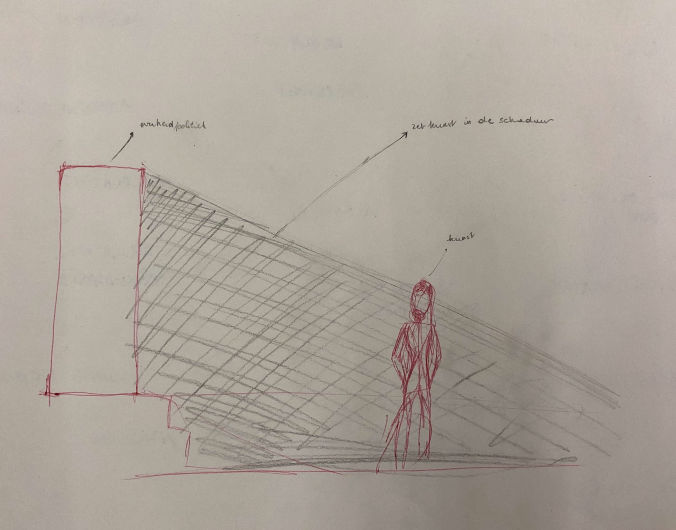 overheid/politiek
zet kunst in de schaduw
kunst